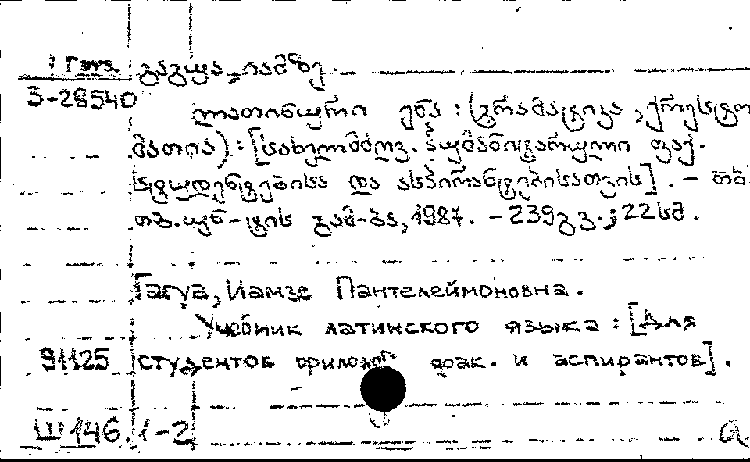 გაგუა, იამზე.
3-28540
ლათინური ენა : (გრამატიკა, ქრესტო
მათია) : [სახელმძღვ. ჰუმანიტარული ფაკ.
სტუდენტებისა და ასპირანტებისათვის]. - თბ.
თბ. უნ-ტის გამ-ბა, 1987. - 239 გვ.; 22 სმ.
Гагуа, Иамзе Пантелеймоновна.
Учебник латинского языка : [Для
91125 студентов филолог. фак. и аспирантов].
Ш 146.1-2